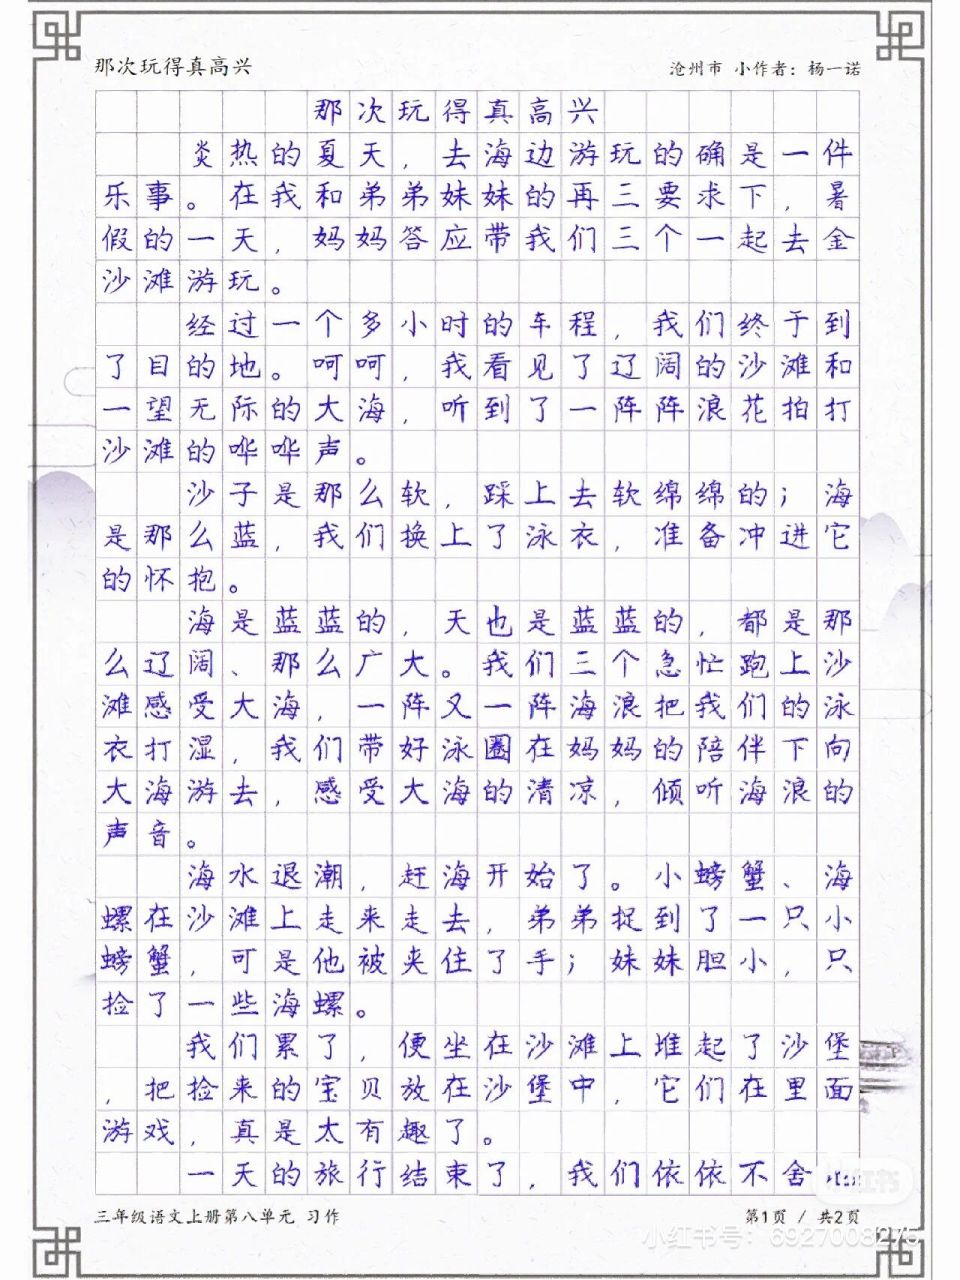 那次玩得真高兴
沧州市 小作者：杨一诺
那次玩得真高兴
炎热的夏天，去海边游玩的确是一件
乐事。在我和弟弟妹妹的再三要求下，暑
假的一天，妈妈答应带我们三个一起去金
沙滩游玩。
经过一个多小时的车程，我们终于到
了目的地。呵呵，我看见了辽阔的沙滩和
一望无际的大海，听到了一阵阵浪花拍打
沙滩的哗哗声。
沙子是那么软，踩上去软绵绵的；海
是那么蓝，我们换上了泳衣，准备冲进它
的怀抱。
海是蓝蓝的，天也是蓝蓝的，都是那
么辽阔、那么广大。我们三个急忙跑上沙
滩感受大海，一阵又一阵海浪把我们的泳
衣打湿，我们带好泳圈在妈妈的陪伴下向
大海游去，感受大海的清凉，倾听海浪的
声音。
海水退潮，赶海开始了。小螃蟹、海
螺在沙滩上走来走去，弟弟捉到了一只小
螃蟹，可是他被夹住了手；妹妹胆小，只
捡了一些海螺。
我们累了，便坐在沙滩上堆起了沙堡
，把捡来的宝贝放在沙堡中，它们在里面
游戏，真是太有趣了。
一天的旅行结束了，我们依依不舍
小红书
三年级语文上册第八单元 习作
第1页 / 共2页
小红书号：6927008275